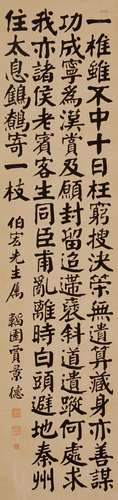 一椎雖不中十日枉窮搜決策無遺算藏身亦善謀
功成寧為漢賞及願封留追遞褒斜道遺蹤何處求
我亦諸侯老賓客生同臣甫亂離時白頭避地秦州
住太息鷦鷯寄一枝
伯宏先生屬 韜園賈景德